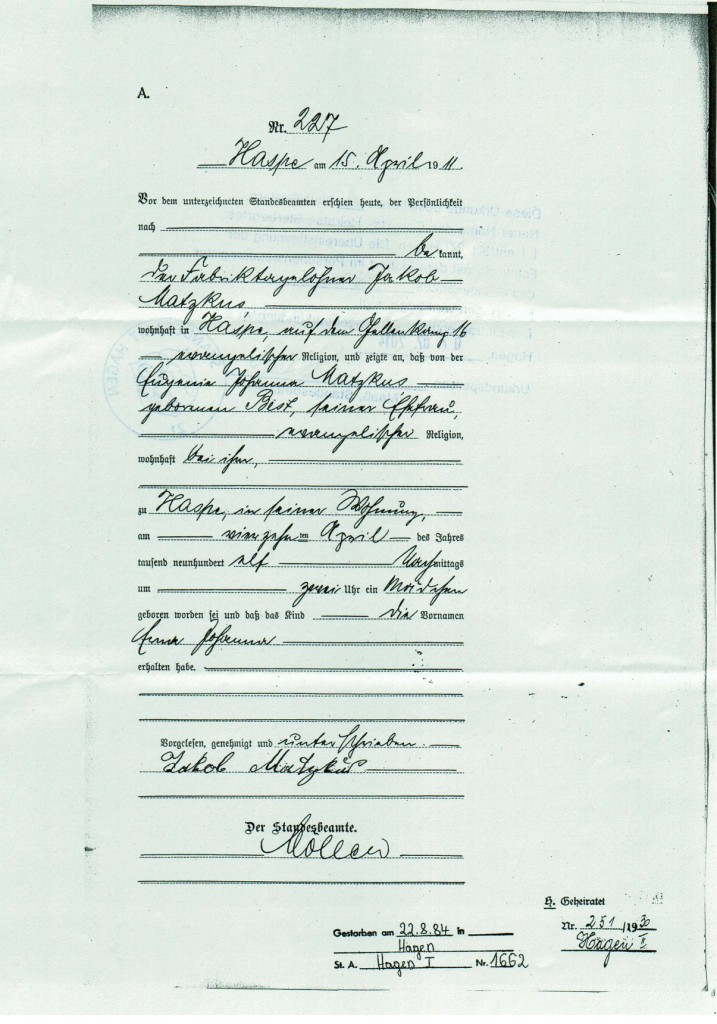 A.
Nr. 227
Haspe am 15. April 1911
Vor dem unterzeichneten Standesbeamten erschien heute, der Persönlichkeit
nach
be kannt,
der Fabriktagelöhner Jakob
Matzkus
wohnhaft in Haspe, auf dem Gellenkamp 16
evangelischer Religion, und zeigte an, daß von der
Eugenie Johanna Matzkus
geborenen Best, seiner Ehefrau,
evangelischer Religion,
wohnhaft bei ihm,
zu Haspe, in seiner Wohnung,
am vierzehnten April des Jahres
tausend neunhundert elf Nachmittags
um zwei Uhr ein Mädchen
geboren worden sei und daß das Kind die Vornamen
Erna Johanna
erhalten habe.
Vorgelesen, genehmigt und unterschrieben.
Jakob Matzkus
Der Standesbeamte.
H. Geheiratet
Nr. 251/1930
Hagen I
Gestorben am 22.8.84 in
Hagen
St. A. Hagen I Nr. 1662